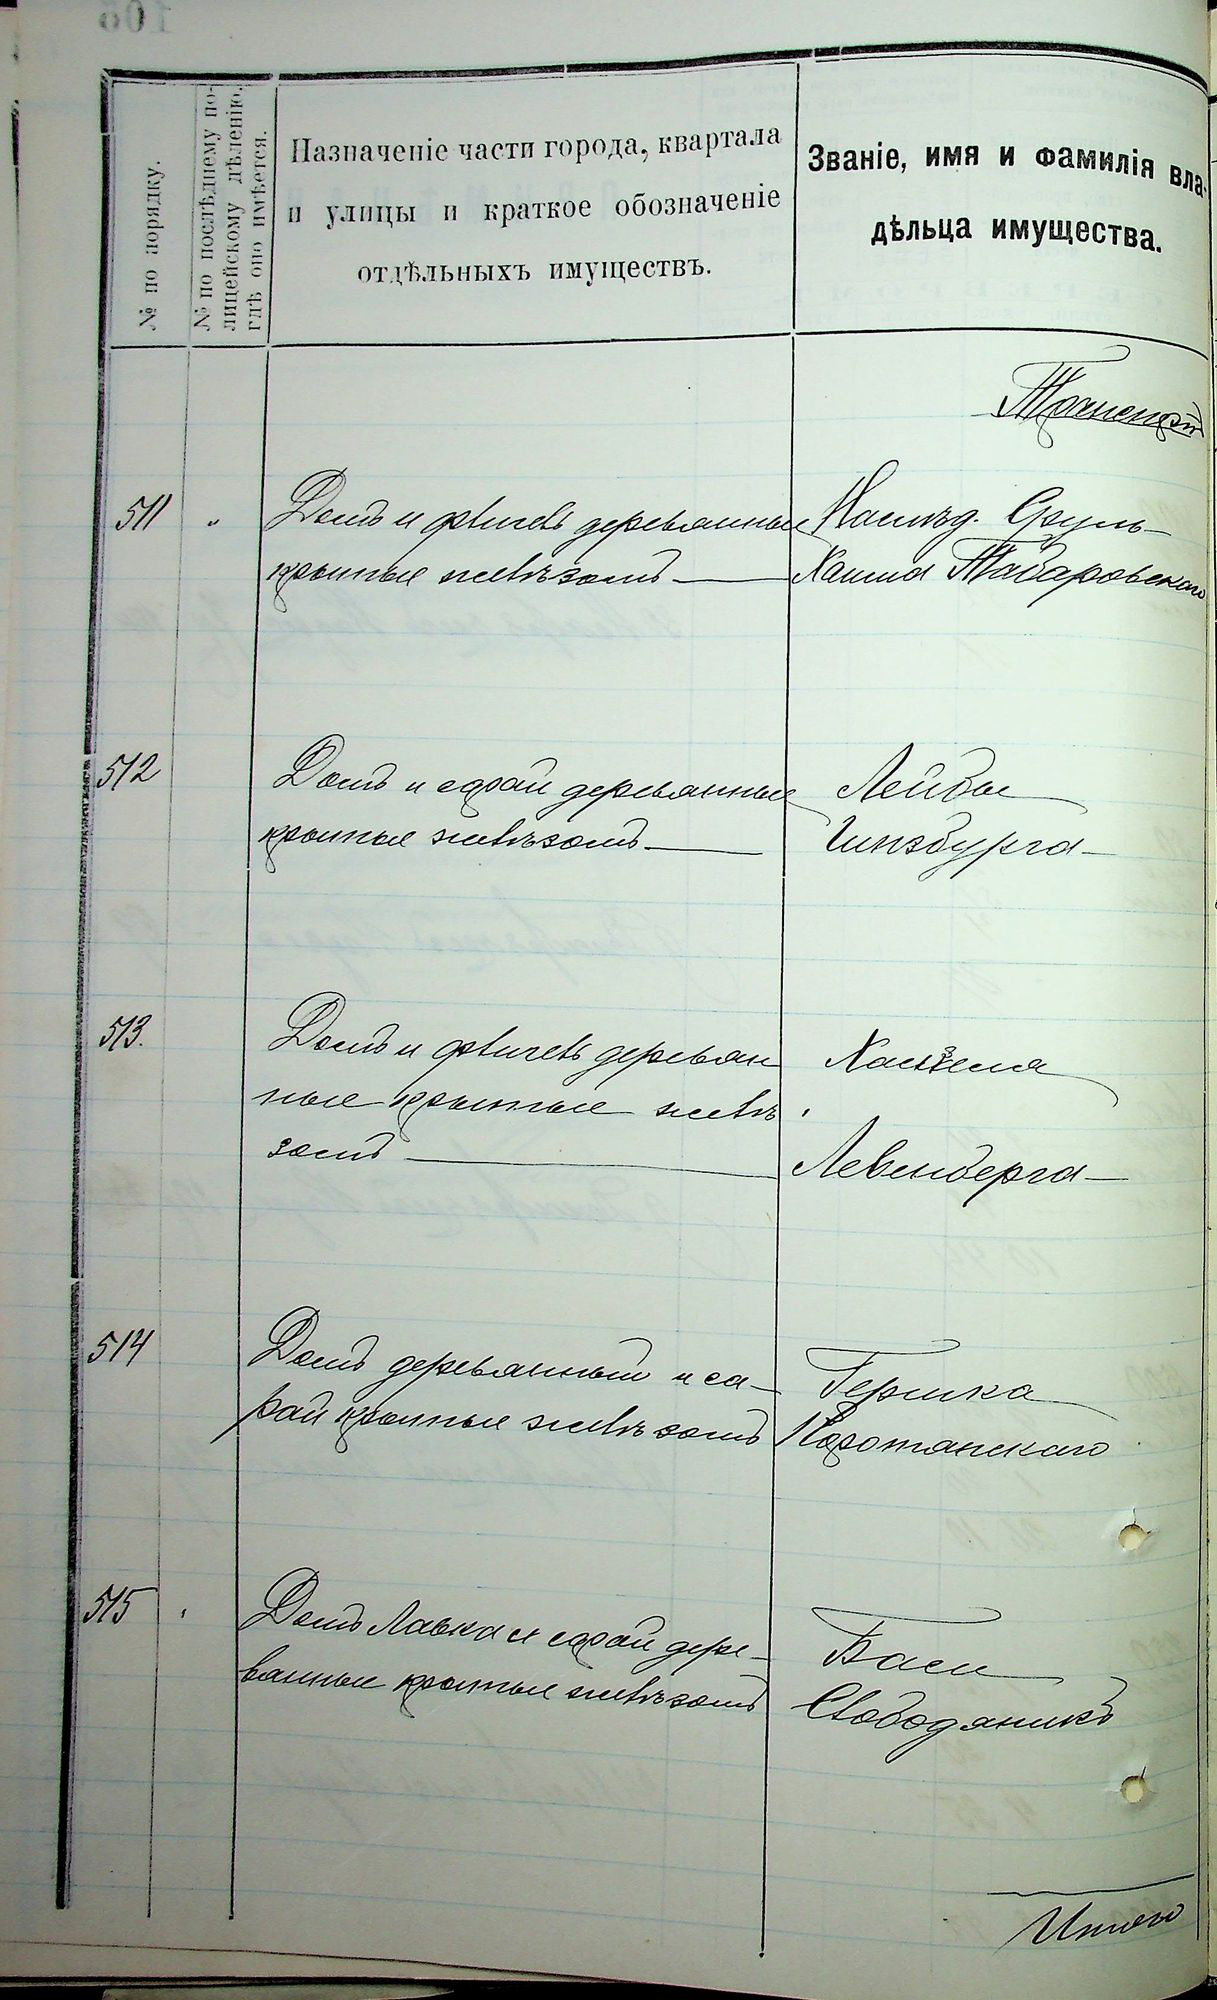 № по порядку.
№ по послѣднему по-
лицейскому дѣленію,
гдѣ оно имѣется.
Назначеніе части города, квартала
и улицы и краткое обозначеніе
отдѣльныхъ имуществъ.
Званіе, имя и фамилія вла-
дѣльца имущества.
Транспортъ
511 " Домъ и флигель деревянные Наслѣд. Сруль-
крытые желѣзомъ Хаима Табаровскаго
512 Домъ и сарай деревянные Лейбы
крытые желѣзомъ Гинзбурга
513. Домъ и флигель деревян
ные крытые желѣ
зомъ Левенберга
514 Домъ деревянный и са-
рай крытые желѣзомъ
Гершка
Коротянскаго
515 Домъ Лавка и сарай дере-
вянные крытые желѣзомъ
Баси
Свободяникъ
Итого